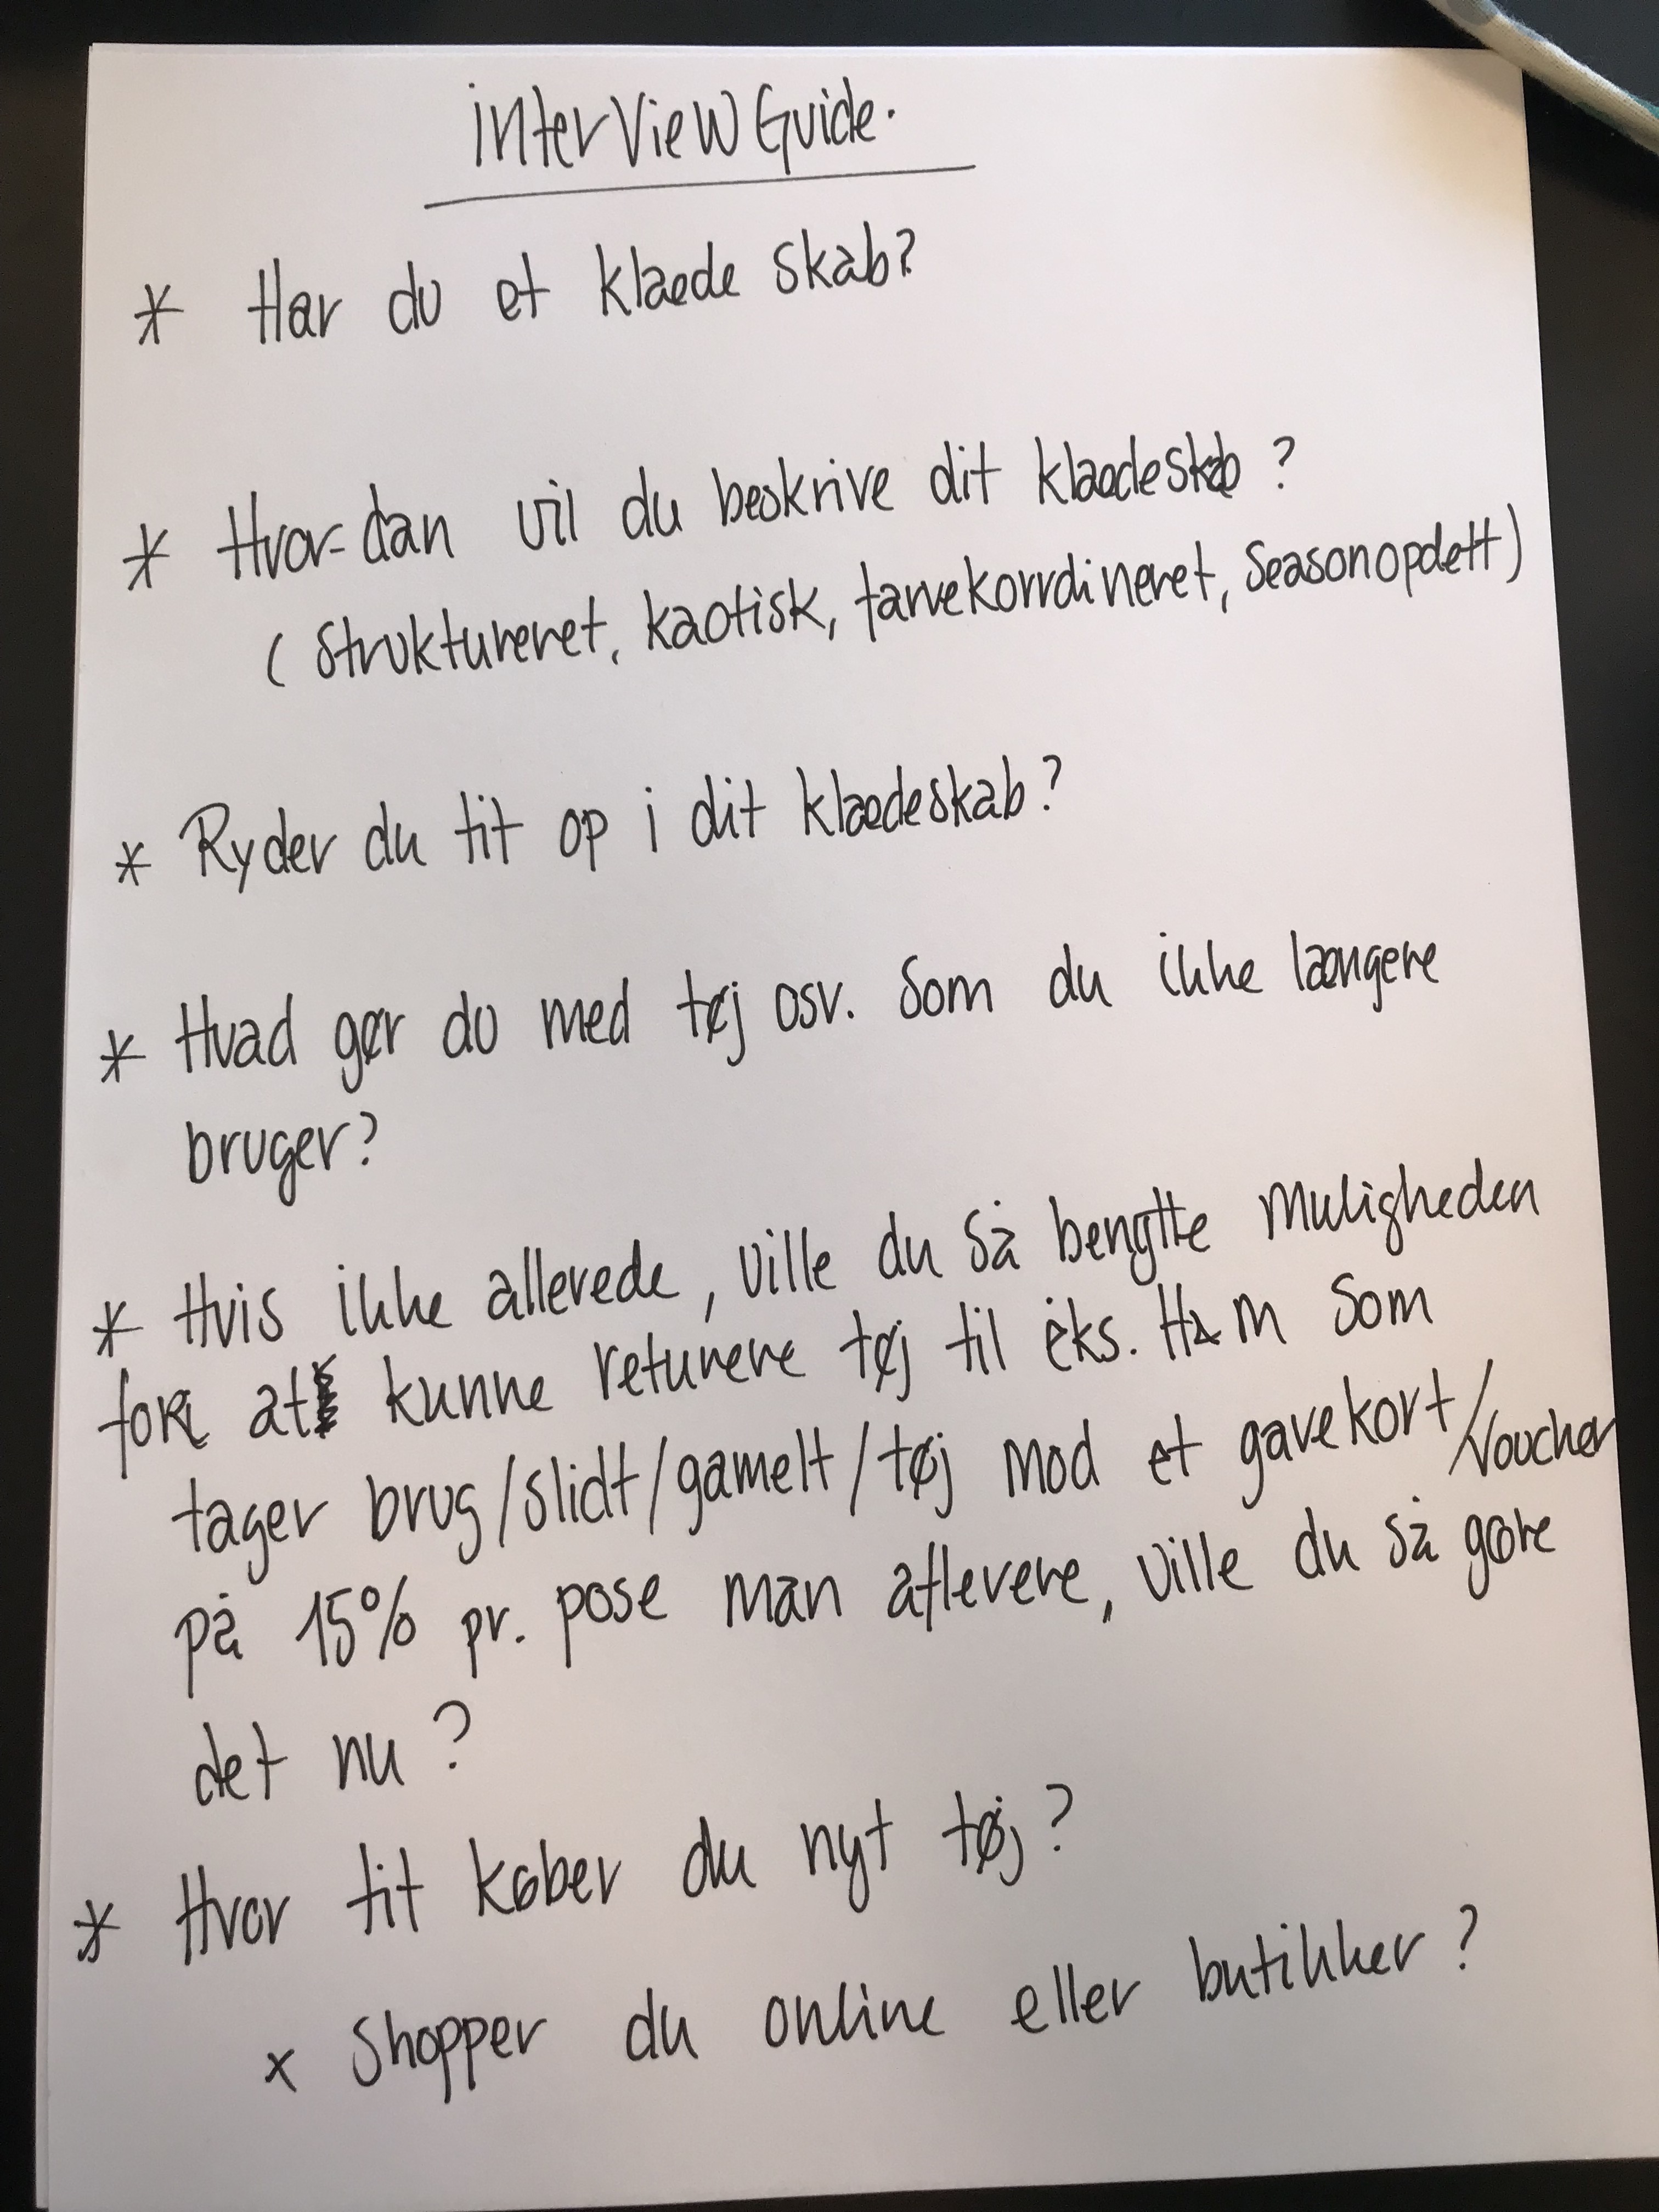 interView Guide.
* Har du et klaede skab?
* Hvor-dan vil du beskrive dit klaedeskab ?
( Struktureret, kaotisk, farvekorrdineret, Seasonopdelt)
* Ryder du tit op i dit klaedeskab?
* Hvad gør du med tøj osv. Som du ikke længere
bruger?
* Hvis ikke allerede, ville du så bengtte Muligheden
for at kunne returere tøj til eks. H&M Som
tager brug/slidt/gamelt/tøj mod et gavekort/Voucher
på 15% pr. pose man aflevere, ville du så gøre
det nu ?
* Hvor tit køber du nyt tøj?
x Shopper du online eller butikker ?